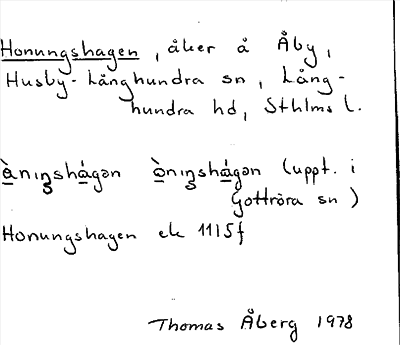 Honungshagen, åker å Åby,
Husby-Långhundra sn, Lång-
hundra hd, Sthlms l.
ànıŋshágən ònıŋshágən (uppt. i
Gottröra sn)
Honungshagen ek 11I5f
Thomas Åberg 1978